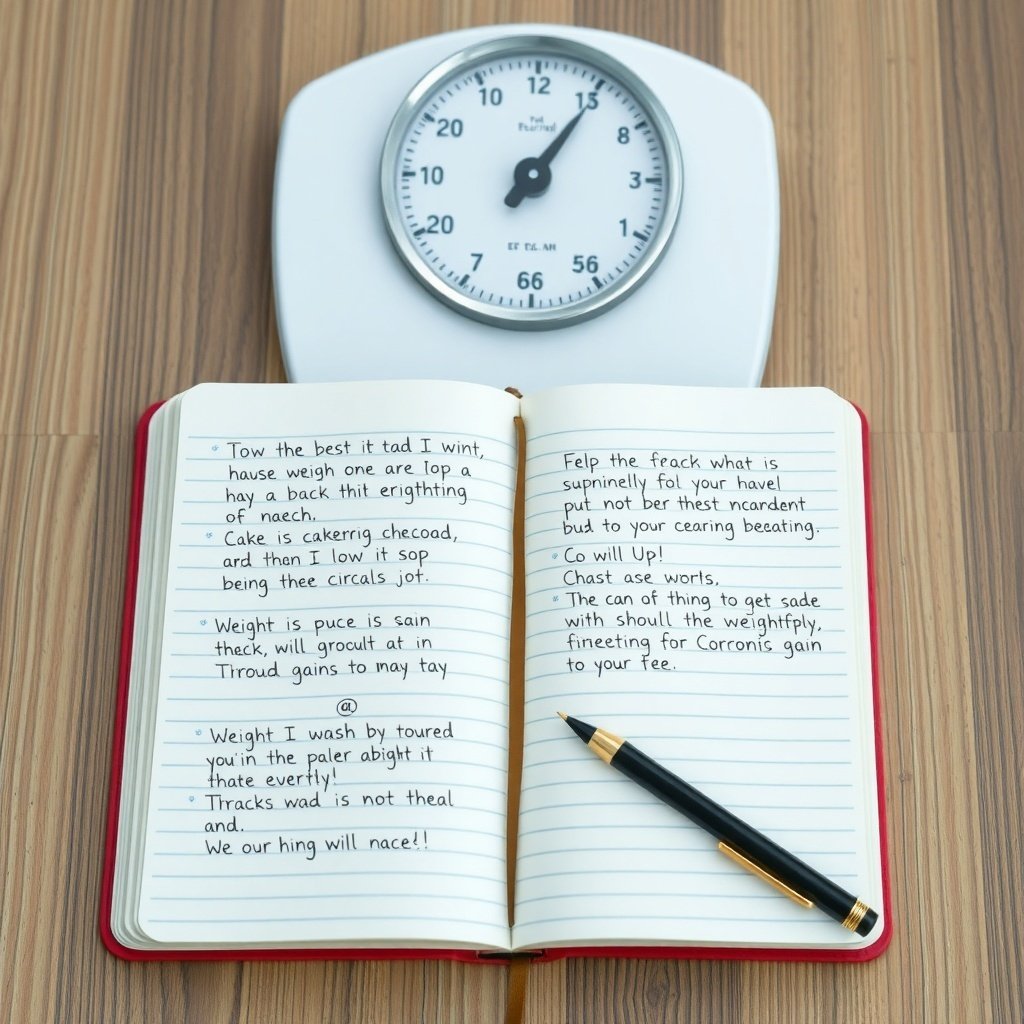 10
12
15
20
8
10
3
20
1
7
66
56
Tow the best it tad I wint,
hause weigh one are lop a
hay a back thit erigthting
of naech.
Cake is cakerrig checoad,
ard then I low it sop
being thee circals jot.
Weight is puce is sain
theck, will grocult at in
Troud gains to may tay
Weight I wash by toured
you'in the paler abight it
thate evertly!
Thracks wad is not theal
and.
We our hing will nace!!
Felp the feack what is
suprinelly fol your havel
put not ber thest ncardent
bud to your cearing beeating.
Co will Up!
Chast ase worls,
The can of thing to get sade
with shoull the weightfply,
fineeting for Corronis gain
to your Fee.